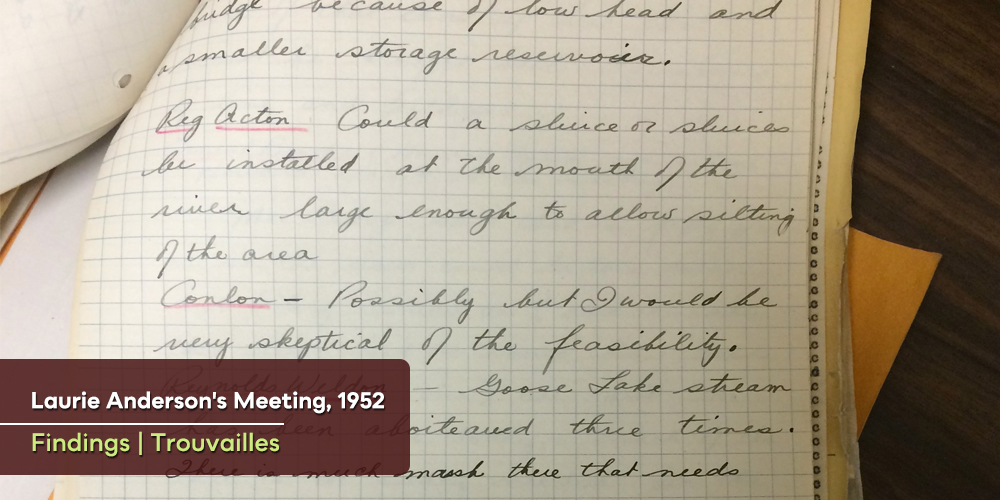 bridge because of low head and
a smaller storage reservoir.
Reg Acton Could a sluice or sluices
be installed at the mouth of the
river large enough to allow silting
of the area
Conlon – Possibly but I would be
very skeptical of the feasibility.
Reynolds Weldon – Goose Lake stream
has been aboiteaued three times.
There is much marsh there that needs
Laurie Anderson's Meeting, 1952
Findings | Trouvailles